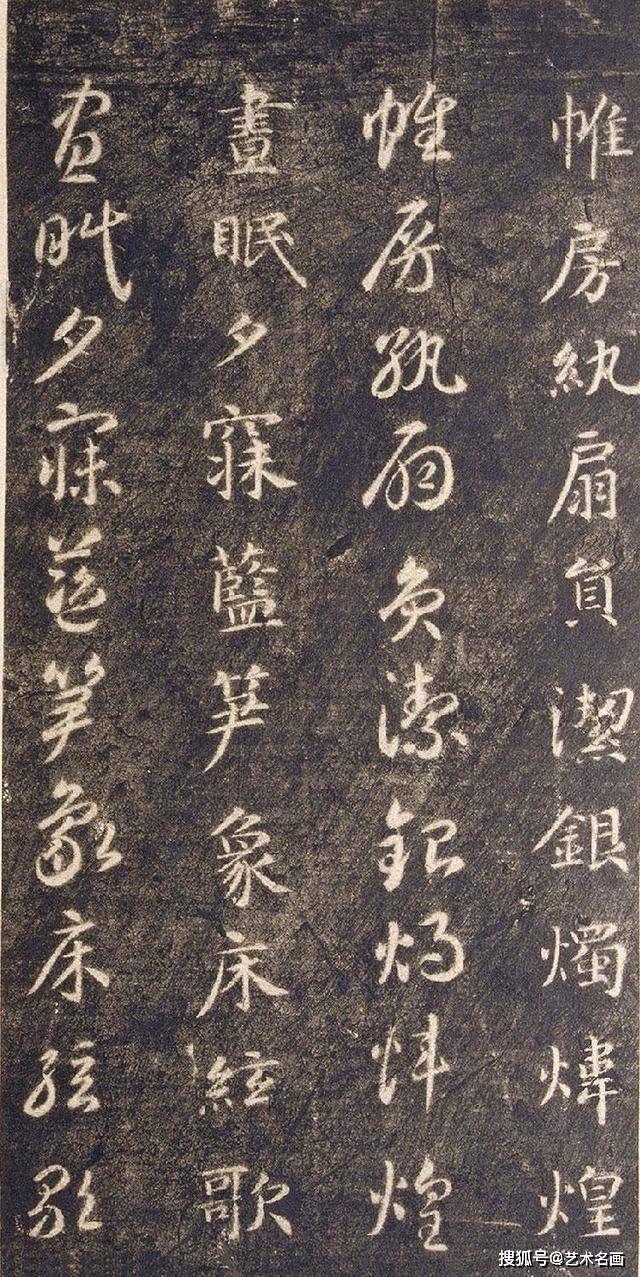 帷房紈扇員潔銀燭煒煌
帷房紈扇員潔銀燭煒煌
晝眠夕寐藍笋象床絃歌
晝眠夕寐藍笋象床絃歌
搜狐号@艺术名画